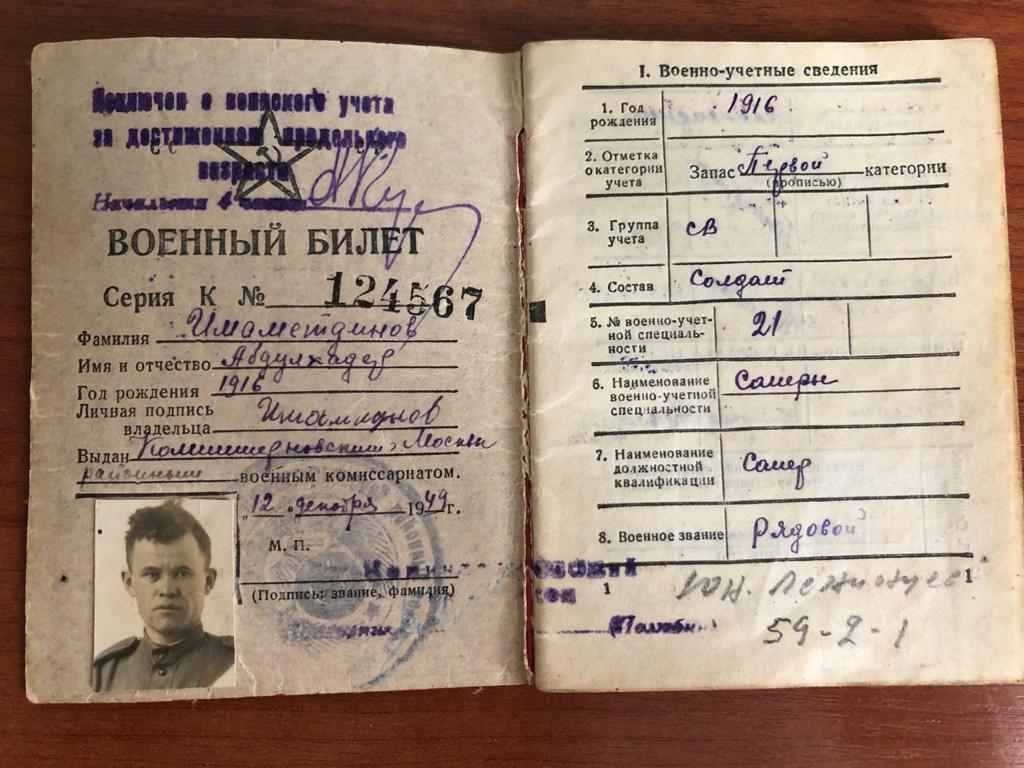 Исключен с воинского учета
за достижением предельного
возраста
Начальник 4
ВОЕННЫЙ БИЛЕТ
Серия К № 124567
Фамилия Имаметдинов
Имя и отчество Абдулхадер
Год рождения 1916
Личная подпись
владельца
Выдан Коминтерновским г Москвы
районным военным комиссариатом.
"12" декабря 1949 г.
М. П.
(Подпись: звание, фамилия)
I. Военно-учетные сведения
1. Год рождения 1916
2. Отметка о категории учета Запас Первой категории
(прописью)
3. Группа учета СВ
4. Состав Солдат
5. № военно-учет-ной специаль-ности 21
6. Наименование военно-учетной специальности Саперы
7. Наименование должностной квалификации Сапер
8. Военное звание Рядовой
1 1
59-2-1